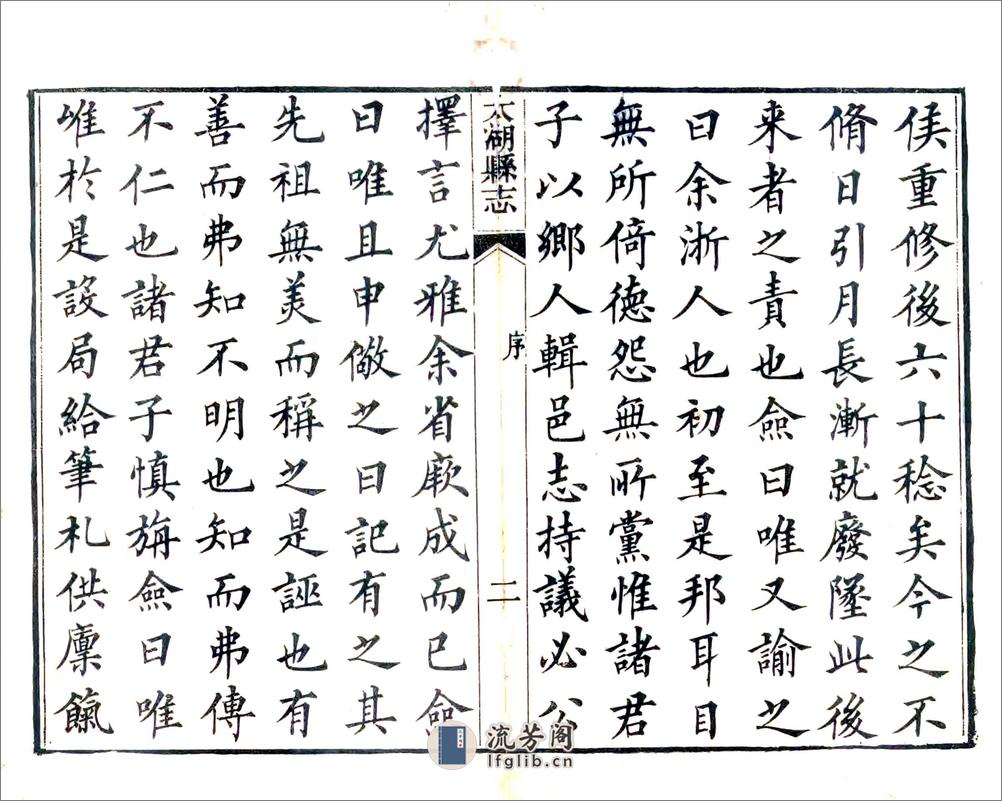 侯重修後六十稔矣今之不
脩日引月長漸就廢墜此後
来者之責也僉曰唯又諭之
曰余浙人也初至是邦耳目
無所倚德怨無所黨惟諸君
子以鄉人輯邑志持議必公
太湖縣志
序
二
擇言尤雅余省厥成而已僉
曰唯且申儆之曰記有之其
先祖無美而稱之是誣也有
善而弗知不明也知而弗傳
不仁也諸君子慎旃僉曰唯
唯於是設局給筆札供廩餼
流芳阁
lfglib.cn